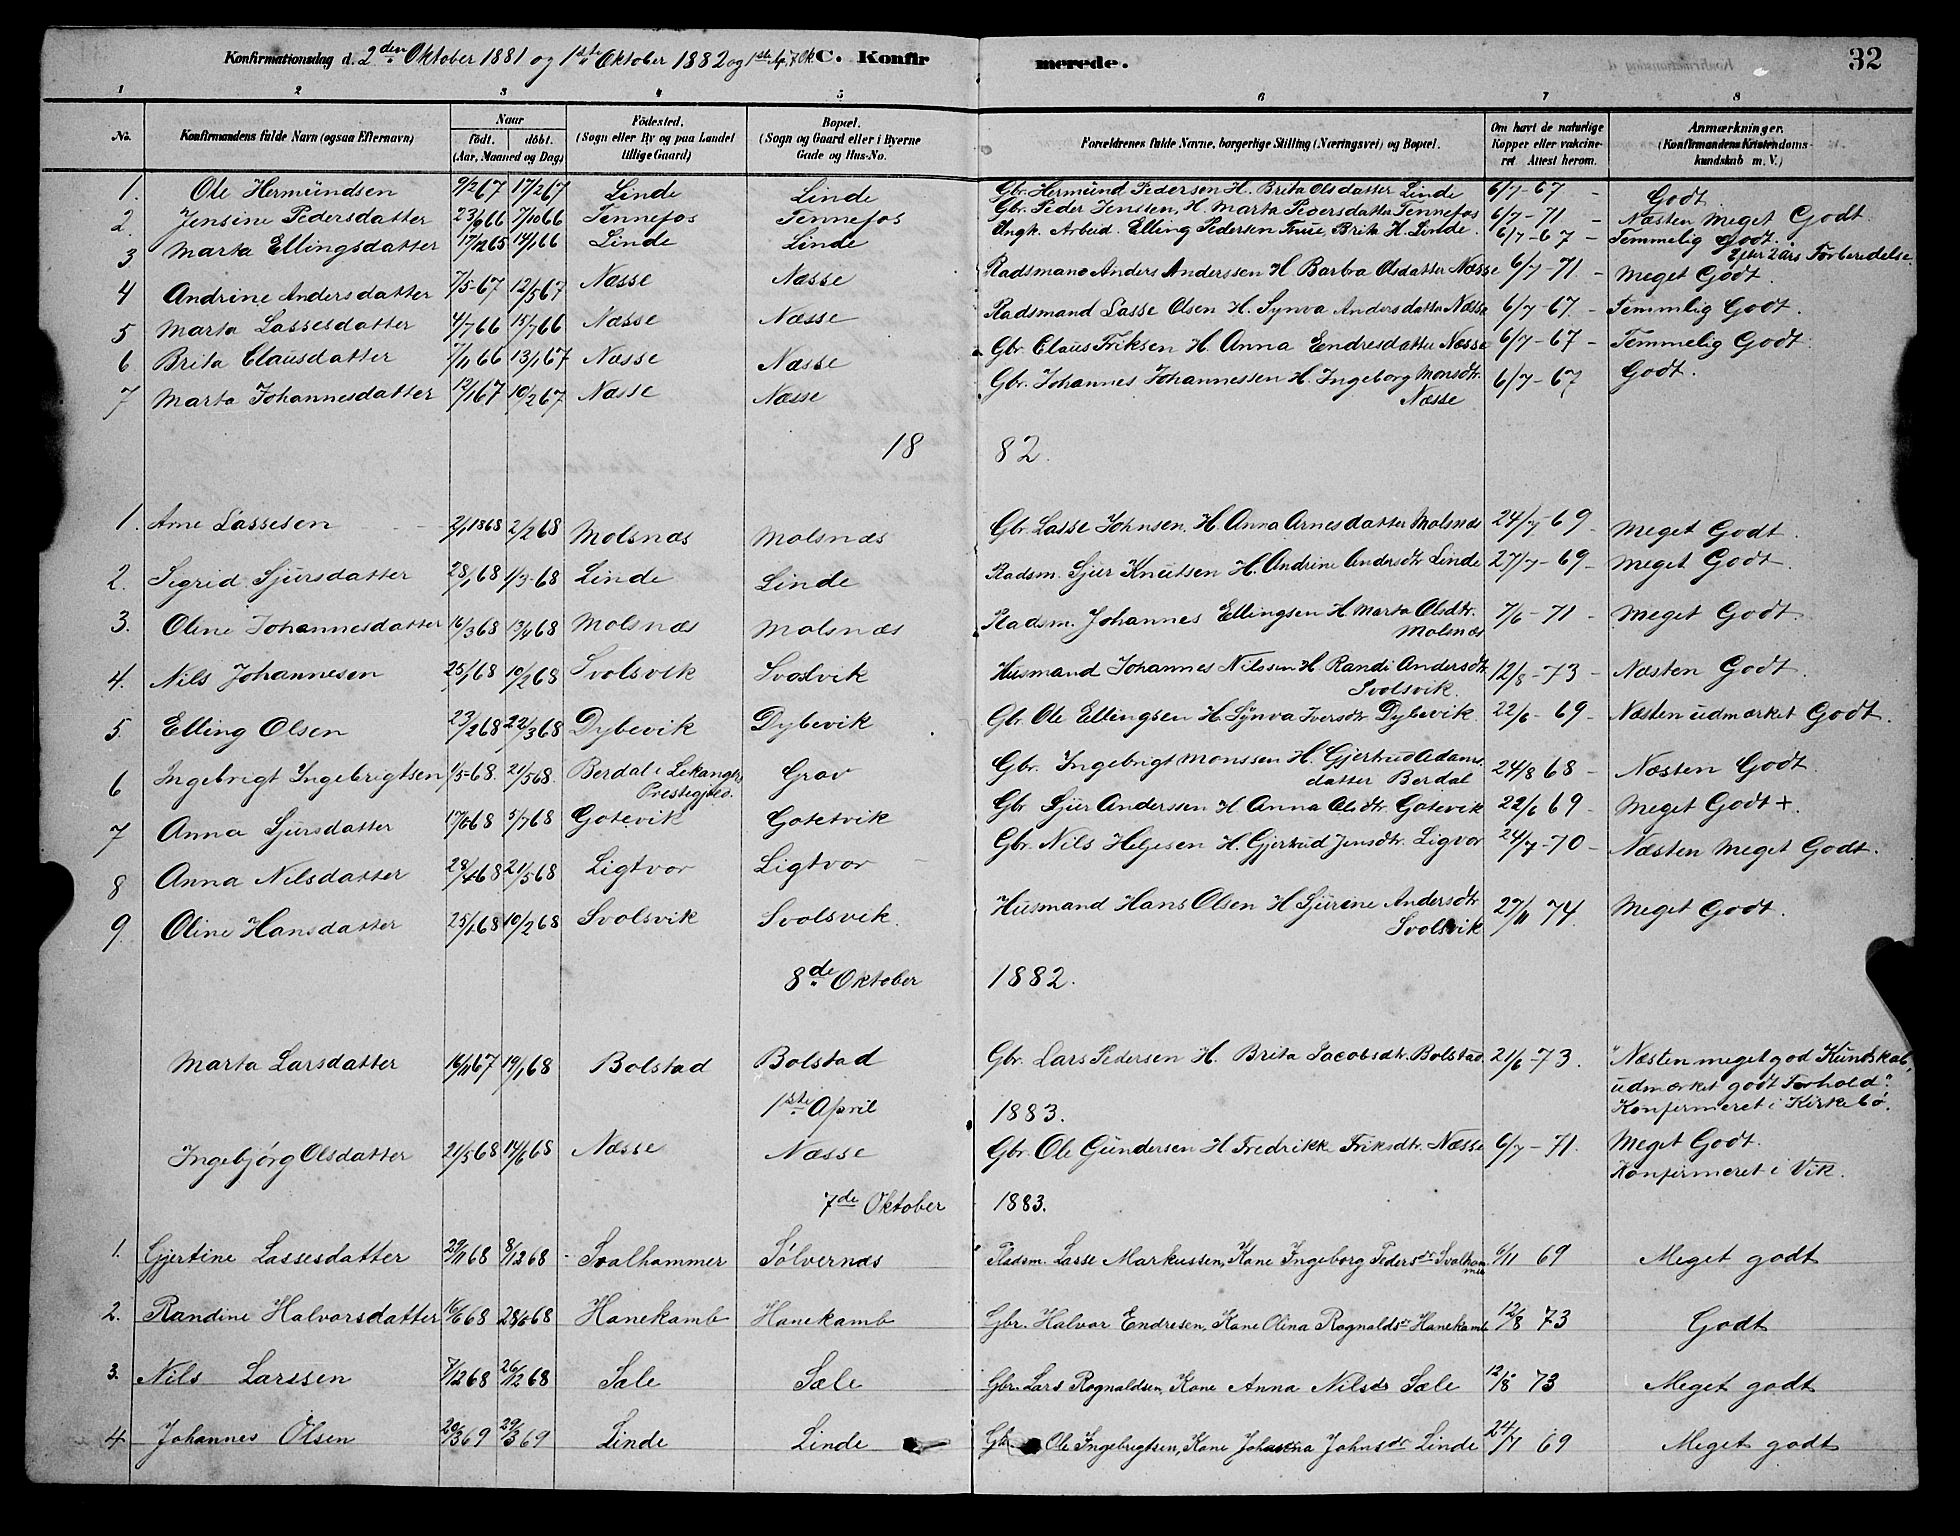 Konfirmationsdag d. 2den Oktober 1881 og 1ste Oktober 1882 og 1ste C. Konfirmerede. 32
1 2 3 4 5 6 7 8
No. Konfirmandens fulde Navn (ogsaa Efternavn) Naar født. døbt. (Aar, Maaned og Dag) Fødested. (Sogn eller By og paa Landet tillige Gaard) Bopæl. (Sogn og Gaard eller i Byerne Gade og Hus-No. Forældrenes fulde Navne, borgerlige Stilling (Næringsvei) og Bopæl. Om havt de naturlige Kopper eller vakcineret. Attest herom. Anmærkninger. (Konfirmandens Kristendomskundskab m. V.)
1. Ole Hermundsen 9/2 67 17/2 67 Linde Linde Gbr. Hermund Pedersen H. Brita Olsdatter Linde 6/7 - 67 - Godt.
2. Jensine Pedersdatter 23/9 66 7/10 66 Tennefos Tennefos Gbr. Peder Jenssen, H. Marta Pedersdatter Tennefos 6/7 - 71 - Næsten Meget Godt
3 Marta Ellingsdatter 17/12 65 14/1 66 Linde Linde Ungk. Arbeid. Elling Pedersen Brita H. Linde. 6/7 - 67 - Temmelig Godt. Efter 2 års Forberedelse.
4 Andrine Andersdatter 7/5 - 67 12/5 67 Næsse Næsse Pladsmand Anders Anderssen H Barbra Olsdatter Næsse 6/7 - 71 - Meget Godt.
5 Marta Lassesdatter 4/7 66 15/7 66 Næsse Næsse Pladsmand Lasse Olsen H. Synva Andersdatter Næsse 6/7 - 67. - Temmlig Godt.
6 Brita Clausdatter 7/11 66 13/1 67 Næsse Næsse Gbr. Claus Friksen H. Anna Endresdatter Næsse 6/7 - 67 - Temmelig Godt.
7 Marta Johannesdatter 12/1 67 10/2 67 Næsse Næsse Gbr. Johannes Johannessen H. Ingeborg Monsdtr. Næsse 6/7 - 67 Godt.
18 82.
1. Arne Lassesen 2/1 1868 2/2 68 Molsnæs Molsnæs Gbr. Lasse Johnsen. H. Anna Arnesdatter Molsnæs 24/7 - 69 - Meget Godt.
2. Sigrid Sjursdatter 28/1 68 1/3 - 68 Linde Linde Pladsm. Sjur Knutsen H. Andrine Andersdtr Linde 27/7 - 69 - Meget Godt.
3. Oline Johannesdatter 16/3 68 13/4 68 Molsnæs Molsnæs Pladsm. Johannes Ellingsen H. Marta Olsdtr. Molsnæs 7/6 - 71 - Meget Godt.
4. Nils Johannesen 25/1 68 10/2 68 Svolsvik Svolsvik Husmand Johannes Nilssen H Randi Andersdtr Svolsvik. 12/8 - 73 - Næsten Godt.
5. Elling Olsen 23/2 68 22/3 68 Dybevik Dybevik Gbr. Ole Ellingsen H. Synva Iversdtr Dybevik. 22/6 - 69 - Næsten udmærket Godt.
6 Ingebrigt Ingebrigtsen 1/5 - 68. 21/5 68. Berdal i Lekanger Prestegjeld. Grov Gbr. Ingebrigt Monssen H. Gjertrud Adamsdatter Berdal 24/8 68 - Næsten Godt.
7 Anna Sjursdatter 17/6 68 5/7 68 Gotevik Gotetvik Gbr Sjur Anderssen H Anna Olsdtr Gotevik 22/6 69 - Meget Godt +.
8 Anna Nilsdatter 28/4 68 21/5 68 Ligtvor Ligtvor Gbr. Nils Helgesen H. Gjertrud Jensdtr. Ligvor 24/7 - 70 - Næsten Meget Godt.
9 Oline Hansdatter 25/1 68 10/2 68 Svolsvik Svolsvik. Husmand Hans Olsen H Sjurine Andersdtr Svolsvik 27/11 74. Meget Godt.
8de Oktober 1882.
Marta Larsdatter 16/11 67 19/1 68 Bolstad Bolstad Gbr. Lars Pedersen H. Brita Jacobsdtr. Bolstad 21/6 - 73. "Næsten meget god Kundskab, udmærket godt Forhold". Konfirmeret i Kirkebø.
1ste April 1883.
Ingebjørg Olsdatter 21/5 68 14/6 68 Næsse Næsse Gbr. Ole Gundersen H Fredrikke Friksdtr. Næsse 6/7 - 71. Meget Godt. Konfirmeret i Vik.
7de Oktober 1883.
1. Gjertine Lassesdatter 29/11 68 8/12 68 - Svalhammer Sølvernæs Pladsm. Lasse Markussen, Kone Ingeborg Pedersdr Svalhammer 6/11 69 Meget godt
2. Randine Halvorsdatter 16/6 68 28/6 68 Hanekamb Hanekamb Gbr. Halvor Endresen, Kone Olina Rognaldsdr Hanekamb 12/8 73 Godt
3. Nils Larssen 7/12 68 26/12 68 Sæle Sæle Gbr. Lars Rognaldsen, Kone Anna Nilsdr Sæle 12/8 73 Meget godt
4 Johannes Olsen 20/3 69 29/3 69 Linde Linde Gbr Ole Ingebrigtsen, Kone Johanna Johnsdr Linde 24/7 69 Meget godt